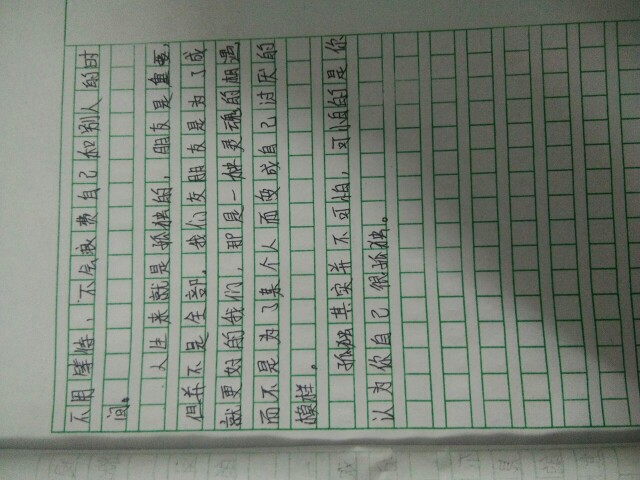 不用牵恃，不会浪费自己和别人的时
间。
人生来就是孤独的，朋友是重要，
但并不是全部，我们交朋友是为了成
就更好的我们，那是一种灵魂的相遇，
而不是为了某个人而变成自己讨厌的
模样。
孤独其实并不可怕，可怕的是你
认为你自己很孤独。